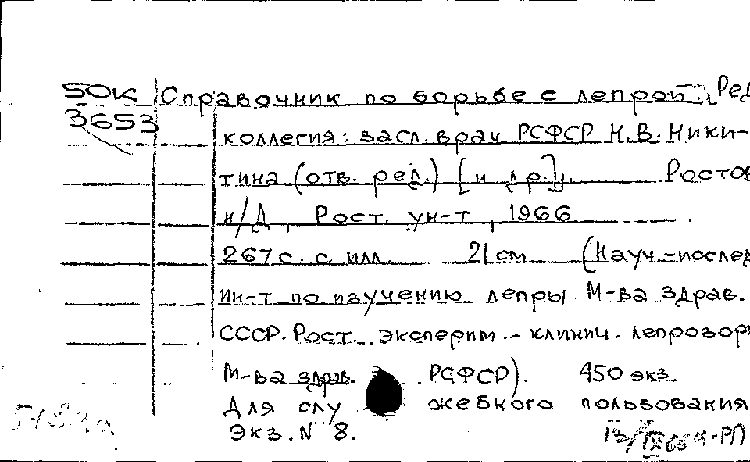 50К Справочник по борьбе с лепрой. Ред
3653 коллегия: засл. врач РСФСР Н.В. Ники-
тина (отв. ред.) [и др.]. Ростов
н/Д, Рост. ун-т, 1966
267 с. с илл. 21 см (Науч.-послед
Ин-т по изучению лепры М-ва здрав.
СССР. Рост. эксперим.-клинич. лепрозори
М-ва здрав. РСФСР). 450 экз.
Для служебного пользования
Экз. N 8.